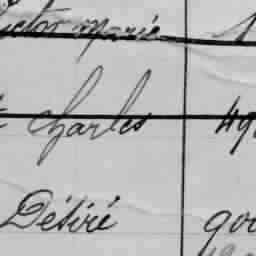 Victor marié 1
Charles 49
Désiré 90